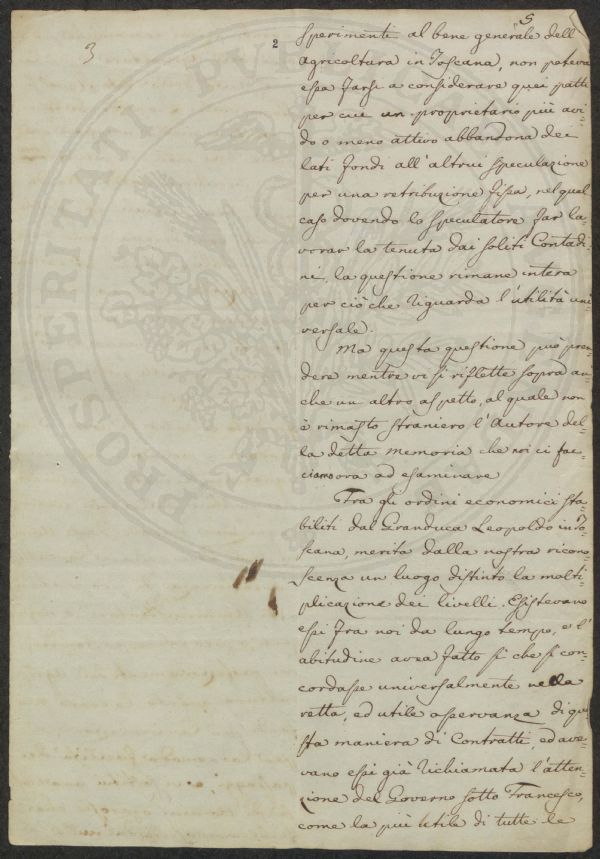 3
2
5
sperimenti al bene generale dell'
agricoltura in Toscana, non poteva
essa farsi a considerare quei patti
per cui un proprietario più avi-
do o meno attivo abbandona dei
lati fondi all'altrui speculazione
per una retribuzione fissa, nel qual
caso dovendo lo speculatore far la-
vorar la tenuta dai soliti Contadi-
ni, la questione rimane intera
per ciò che riguarda l'utilità uni-
versale.
Ma questa questione può pren-
dere mentre vi si riflette sopra an-
che un altro aspetto, al quale non
è rimasto straniero l'Autore del-
la detta Memoria che noi ci fac-
ciamo ora ad esaminare
Tra gli ordini economici sta-
biliti dal Granduca Leopoldo in To-
scana, merita dalla nostra ricono-
scenza un luogo distinto la molti-
plicazione dei livelli. Esistevano
essi fra noi da lungo tempo, e l'
abitudine avea fatto sì che si con-
cordasse universalmente nella
retta, ed utile osservanza di que-
sta maniera di Contratti, ed ave-
vano essi già richiamata l'atten-
zione del Governo sotto Francesco,
come la più utile di tutte le
PROSPERITATI PUBLICAE